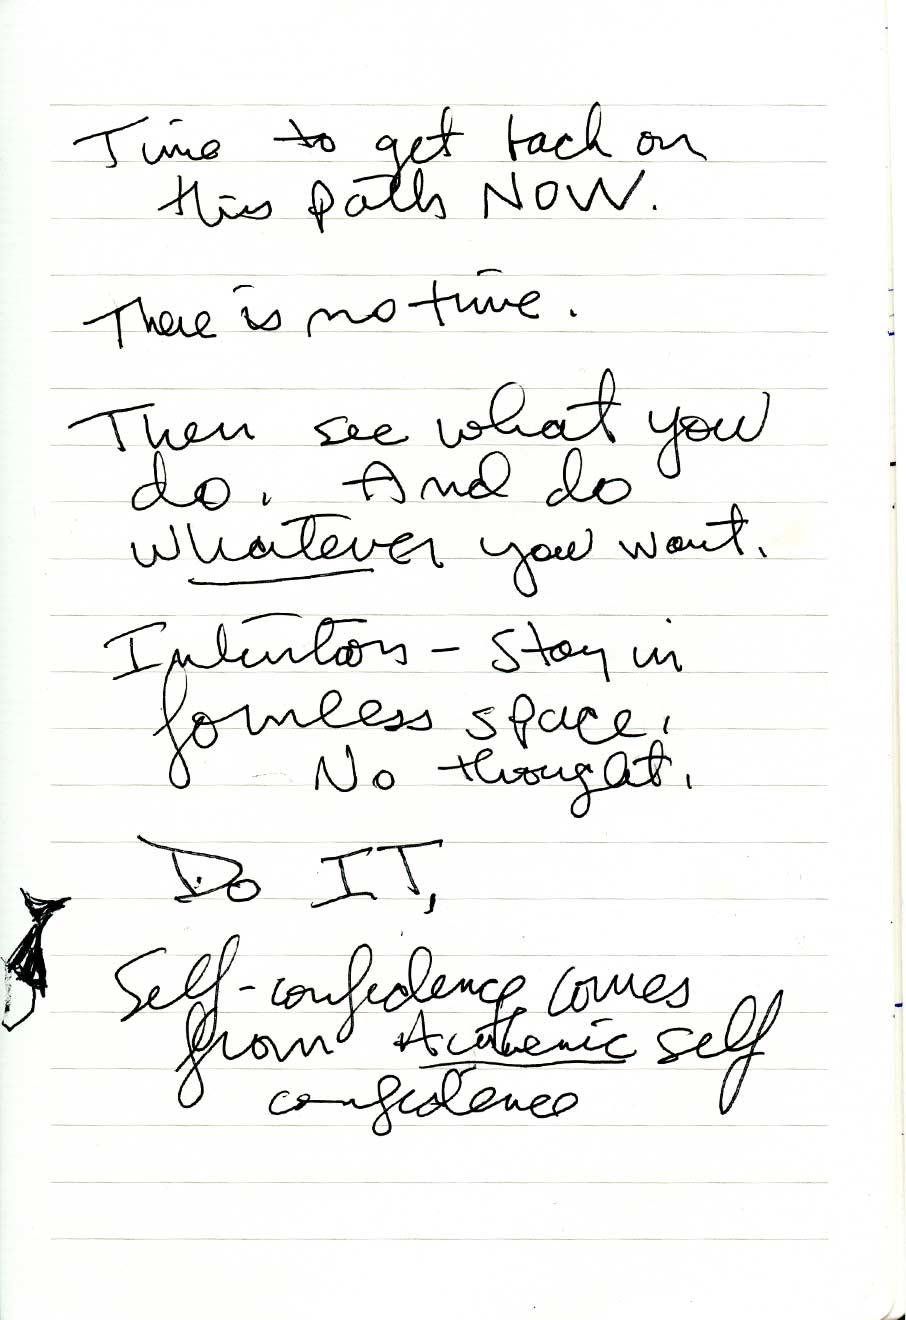 Time to get back on
this path NOW.
There is no time.
Then see what you
do. And do
whatever you want.
Intention - stay in
formless space.
No thought.
Do IT,
Self-confidence comes
from Authenic self
confidence